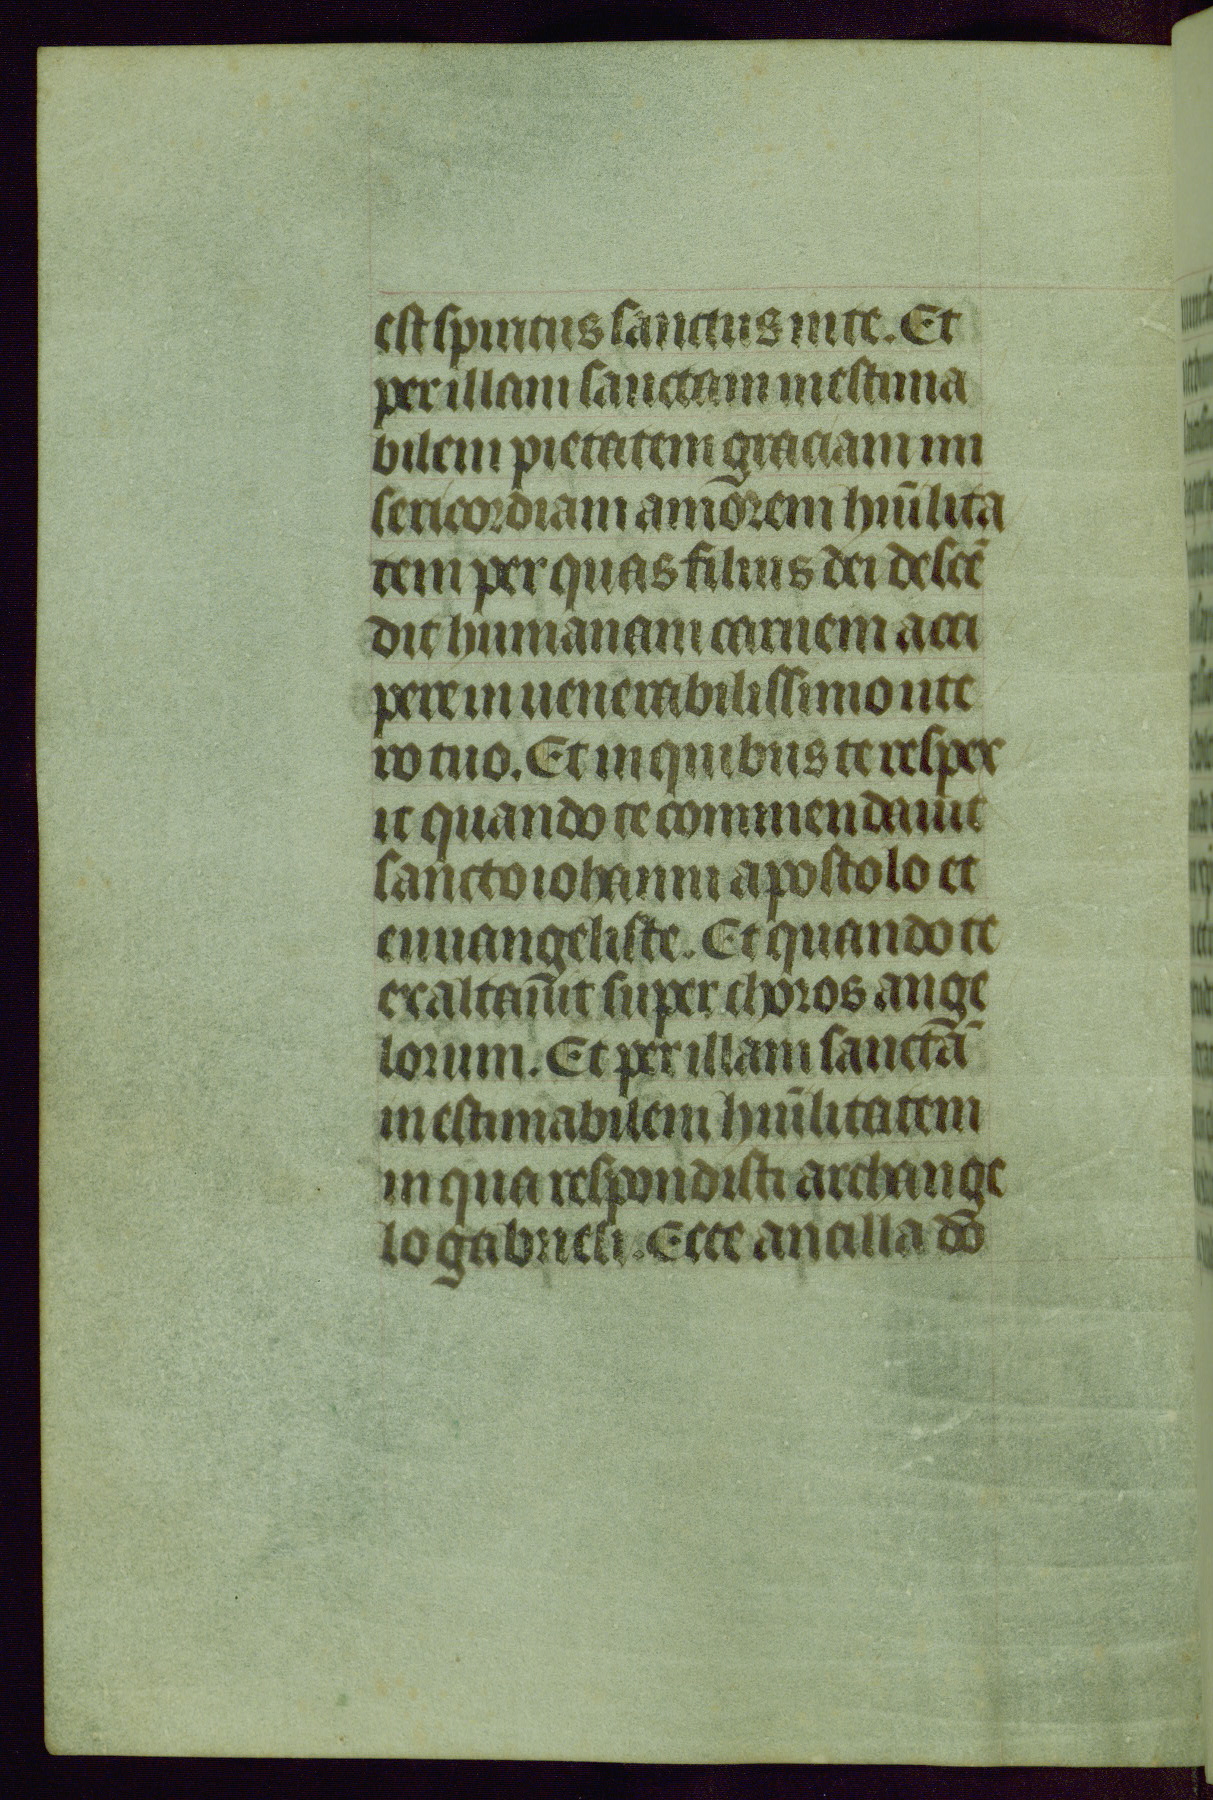 est spiritus sanctus in te. Et
per illam sanctam inestima
bilem pietatem graciam mi
sericordiam amorem huīlita
tem per quas filius dei descē
dit humanam carnem acci
pere in uenerabilissimo ute
ro tuo. Et in quibus te respex
it quando te commendauit
sancto iohanni apostolo et
euuangeliste. Et quando te
exaltauit super choros ange
lorum. Et per illam sanctā
inestimabilem huīlitatem
in qua respondisti archange
lo gabrieli. Ecce ancilla dō